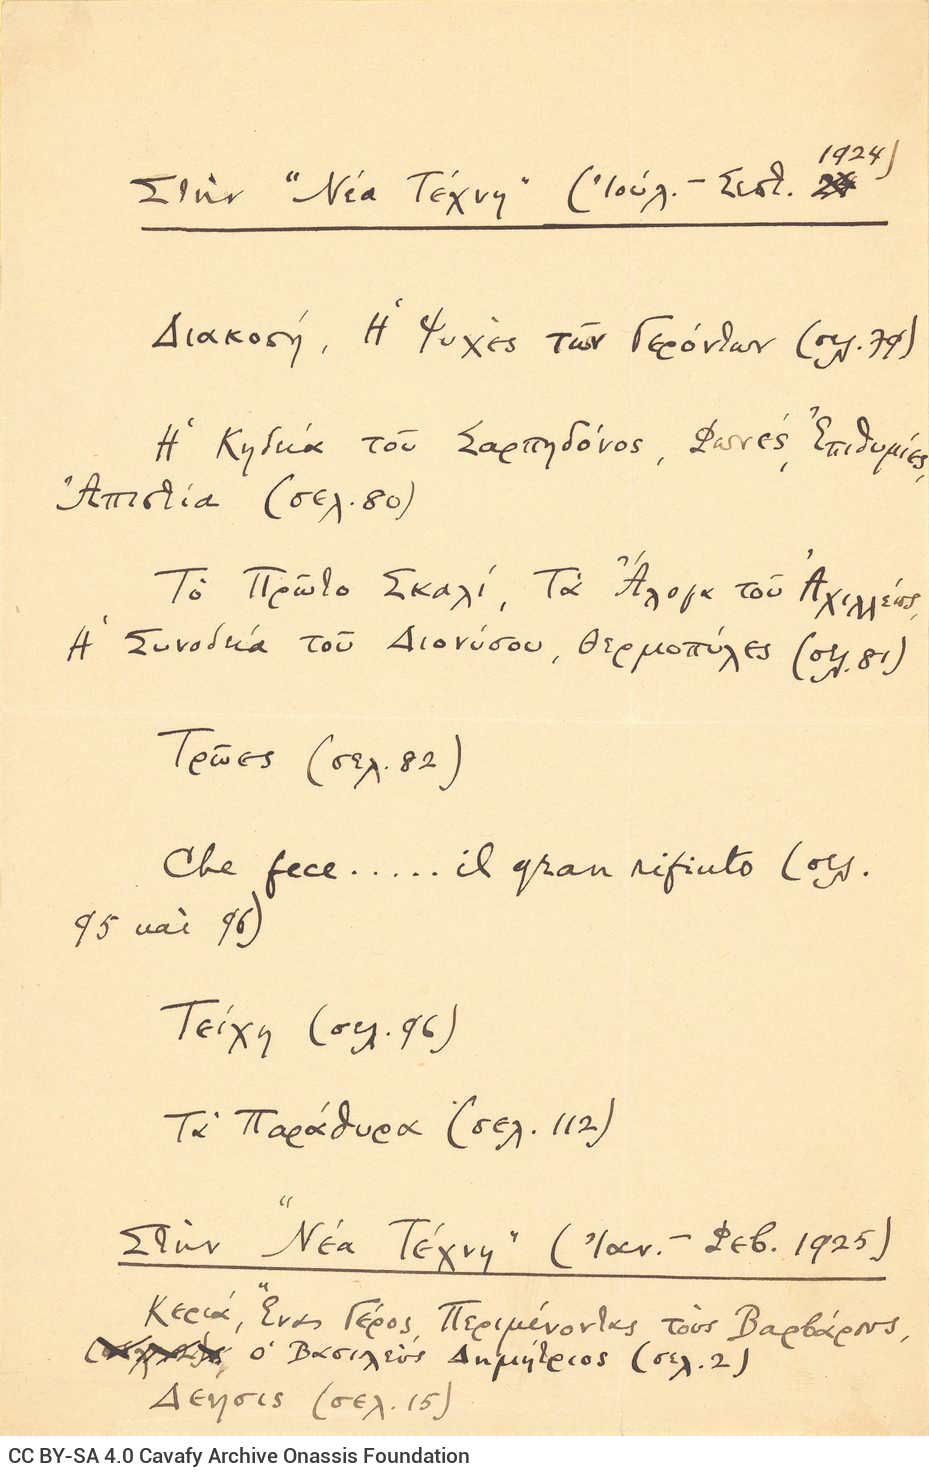 Στὴν "Νέα Τέχνη" (Ἰούλ. - Σεπτ. 1924)
Διακοπή, Ἡ Ψυχὲς τῶν Γερόντων (σελ. 79)
Ἡ Κηδεία τοῦ Σαρπηδόνος, Φωνές, Ἐπιθυμίες,
Ἀπιστία (σελ. 80)
Τὸ Πρῶτο Σκαλί, Τὰ Ἄλογα τοῦ Ἀχιλλέως,
Ἡ Συνοδεία τοῦ Διονύσου, Θερμοπύλες (σελ. 81)
Τρῶες (σελ. 82)
Che fece..... il gran rifiuto (σελ.
95 καὶ 96)
Τείχη (σελ. 96)
Τὰ Παράθυρα (σελ. 112)
Στὴν "Νέα Τέχνη" (Ἰαν. - Φεβ. 1925)
Κεριά, Ἕνας Γέρος, Περιμένοντας τοὺς Βαρβάρους,
ὁ Βασιλεὺς Δημήτριος (σελ. 2)
Δέησις (σελ. 15)
CC BY-SA 4.0 Cavafy Archive Onassis Foundation